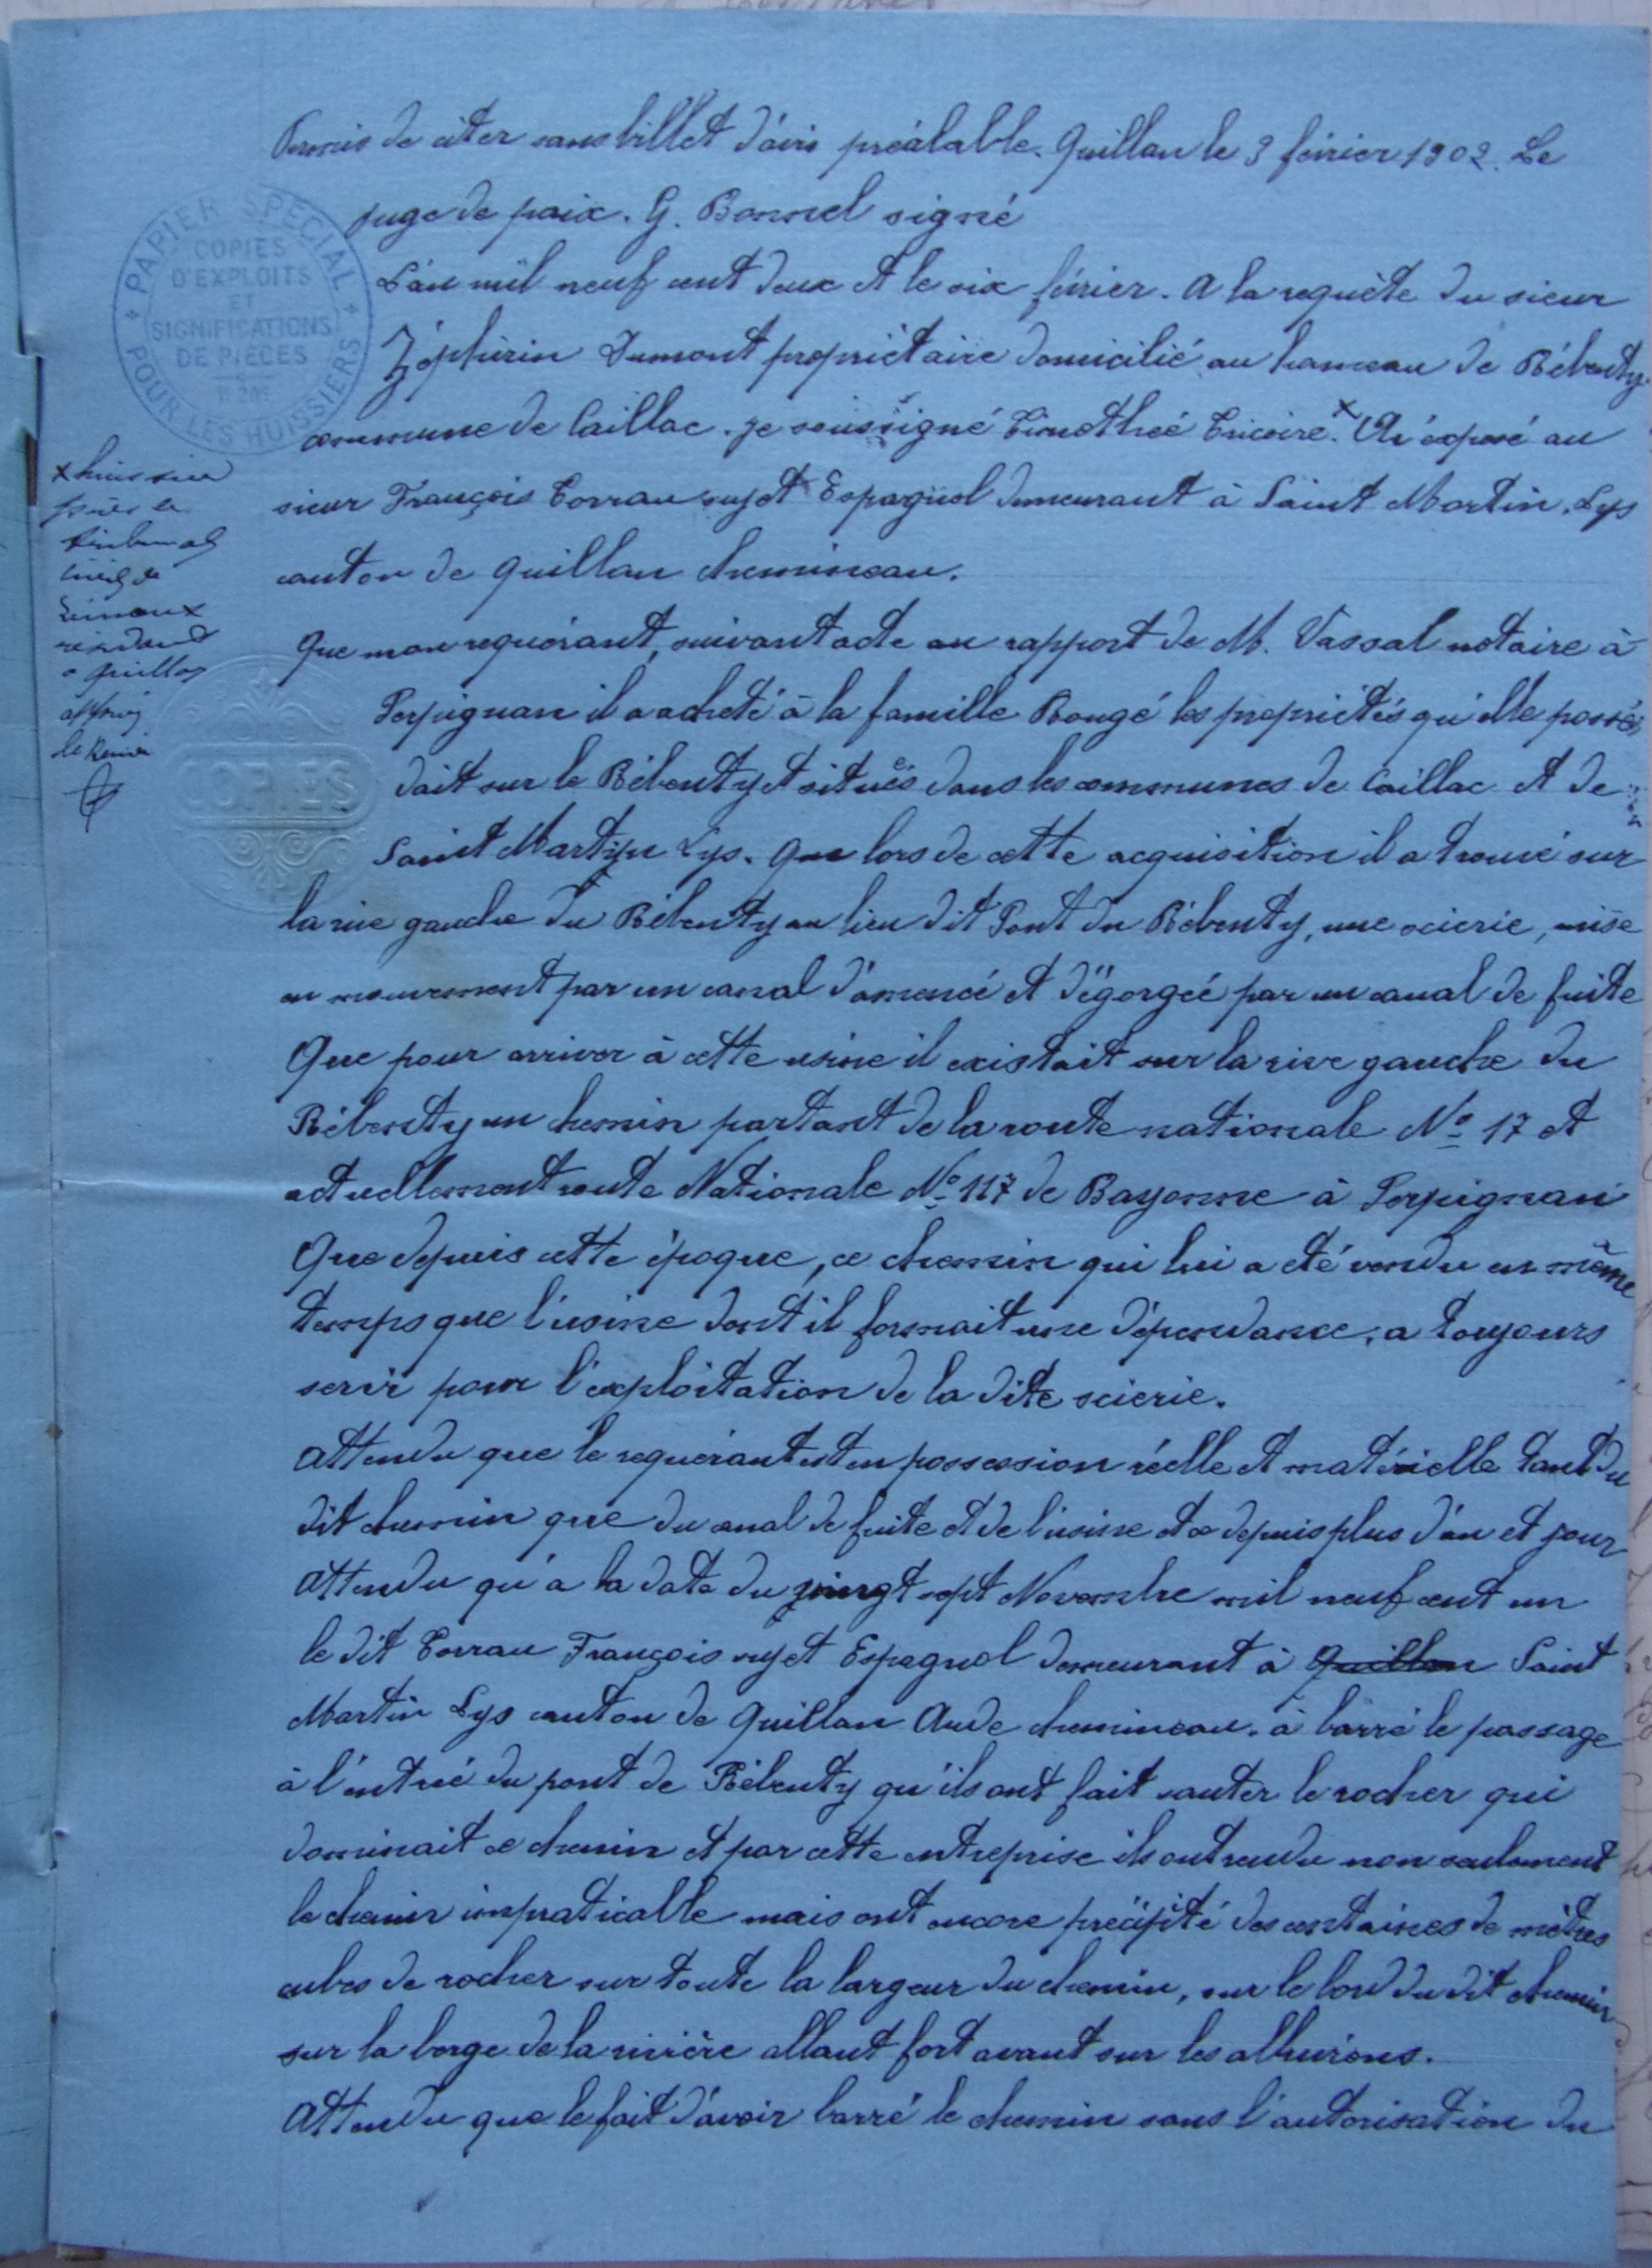 Permis de citer sans billet d'avis préalable. Quillan le 3 février 1902. Le
juge de paix. G. Bonnel signé
L'an mil neuf cent deux et le six février. A la requête du sieur
Zéphirin Dumont propriétaire domicilié au hameau de Rébenty
commune de Caillac. je soussigné Timothée Tricoire. x Ai exposé au
sieur François Torrau sujet Espagnol demeurant à Saint Martin Lys
canton de Quillan chemineau.
Que mon requérant, suivant acte au rapport de M. Vassal notaire à
Perpignan il a acheté à la famille Rougé les propriétés qu'elle possé
dait sur le Rébenty et situés dans les communes de Caillac et de
Saint Martin Lys. Que lors de cette acquisition il a trouvé sur
la rive gauche du Rébenty au lieu dit Pont du Rébenty, une scierie, mise
en mouvement par un canal d'amenée et dégorgée par un canal de fuite
Que pour arriver à cette usine il existait sur la rive gauche du
Rébenty un chemin partant de la route nationale No 17 et
actuellement route Nationale No 117 de Bayonne à Perpignan
Que depuis cette époque, ce chemin qui lui a été vendu en même
temps que l'usine dont il formait une dépendance, a toujours
servir pour l'exploitation de la dite scierie.
Attendu que le requérant est en possession réelle et matérielle tant du
dit chemin que du canal de fuite et de l'usine et ce depuis plus d'an et jour
Attendu qu'à la date du vingt sept Novembre mil neuf cent un
le dit Torrau François sujet Espagnol demeurant à Quillan Saint
Martin Lys canton de Quillan Aude chemineau. à barré le passage
à l'entrée du pont de Rébenty qu'ils ont fait sauter le rocher qui
dominait ce chemin et par cette entreprise ils ont rendu non seulement
le chemin impraticable mais ont encore précipité des centaines de mètres
cubes de rocher sur toute la largeur du chemin, sur le bord du dit chemin
sur la berge de la rivière allant fort avant sur les alluvions.
Attendu que le fait d'avoir barré le chemin sans l'autorisation du
x huissier
près le
tribunal
civil de
Limoux
résidant
à Quillan
PAPIER SPÉCIAL
COPIES
D'EXPLOITS
ET
SIGNIFICATIONS
DE PIÈCES
POUR LES HUISSIERS
COPIES